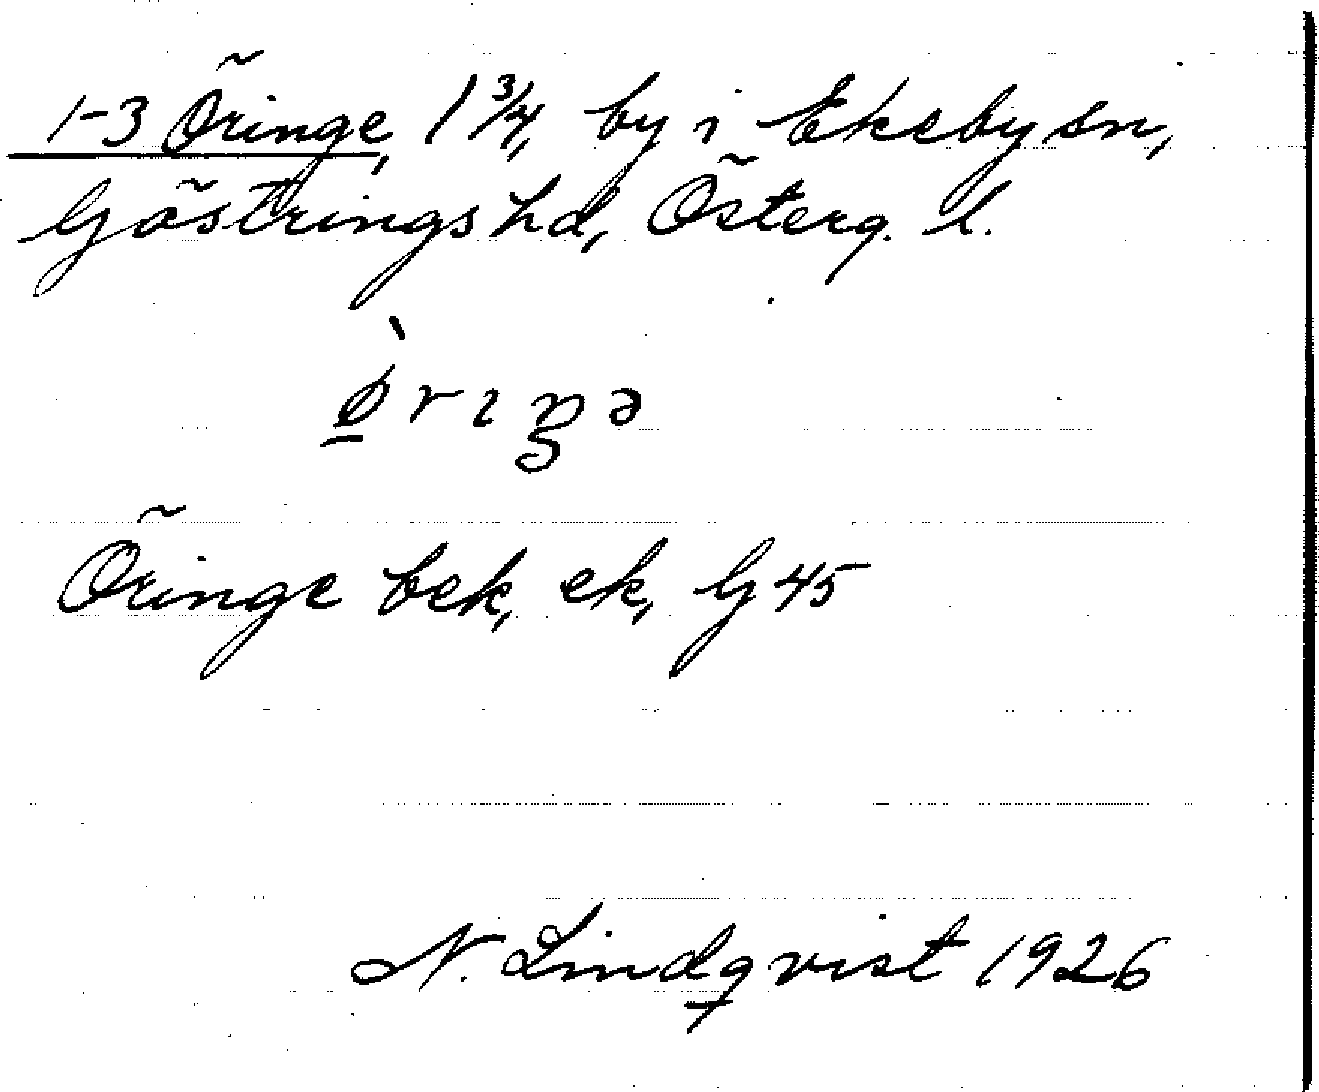 1-3 Öringe, 1 3/4, by i Ekeby sn,
Göstrings hd, Österg. l.
ø̱̀rıŋə
Öringe bek, ek, G 45
N. Lindqvist 1926